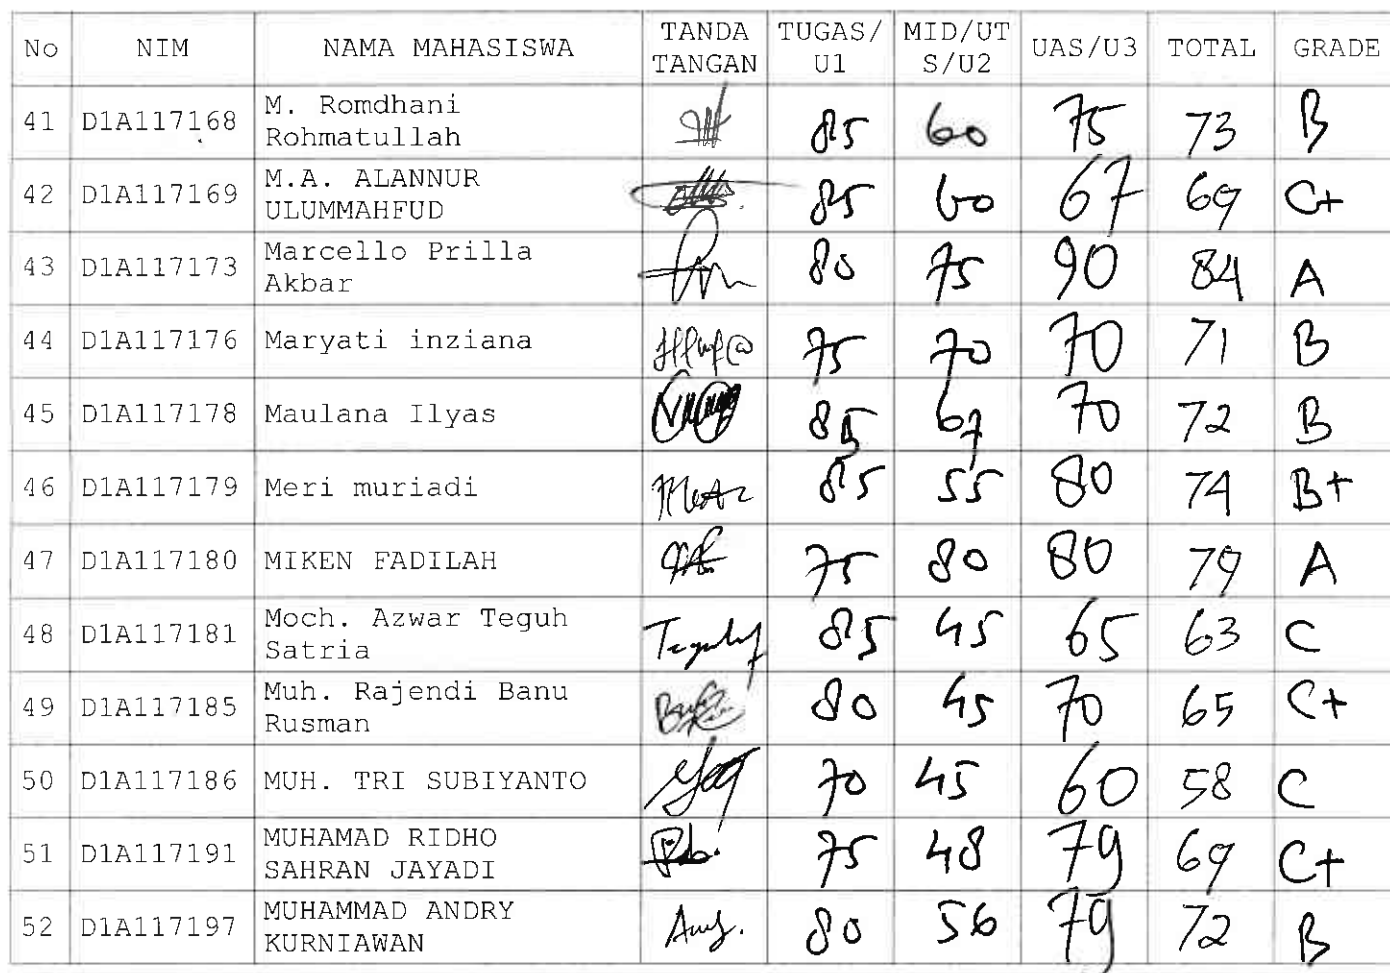 No NIM NAMA MAHASISWA TANDA TANGAN TUGAS/U1 MID/UTS/U2 UAS/U3 TOTAL GRADE
41 D1A117168 M. Romdhani Rohmatullah 85 60 75 73 B
42 D1A117169 M.A. ALANNUR ULUMMAHFUD 85 60 67 69 C+
43 D1A117173 Marcello Prilla Akbar 80 75 90 84 A
44 D1A117176 Maryati inziana 75 70 70 71 B
45 D1A117178 Maulana Ilyas 85 67 70 72 B
46 D1A117179 Meri muriadi 85 55 80 74 B+
47 D1A117180 MIKEN FADILAH 75 80 80 79 A
48 D1A117181 Moch. Azwar Teguh Satria 85 45 65 63 C
49 D1A117185 Muh. Rajendi Banu Rusman 80 45 70 65 C+
50 D1A117186 MUH. TRI SUBIYANTO 70 45 60 58 C
51 D1A117191 MUHAMAD RIDHO SAHRAN JAYADI 75 48 79 69 C+
52 D1A117197 MUHAMMAD ANDRY KURNIAWAN 80 56 79 72 B